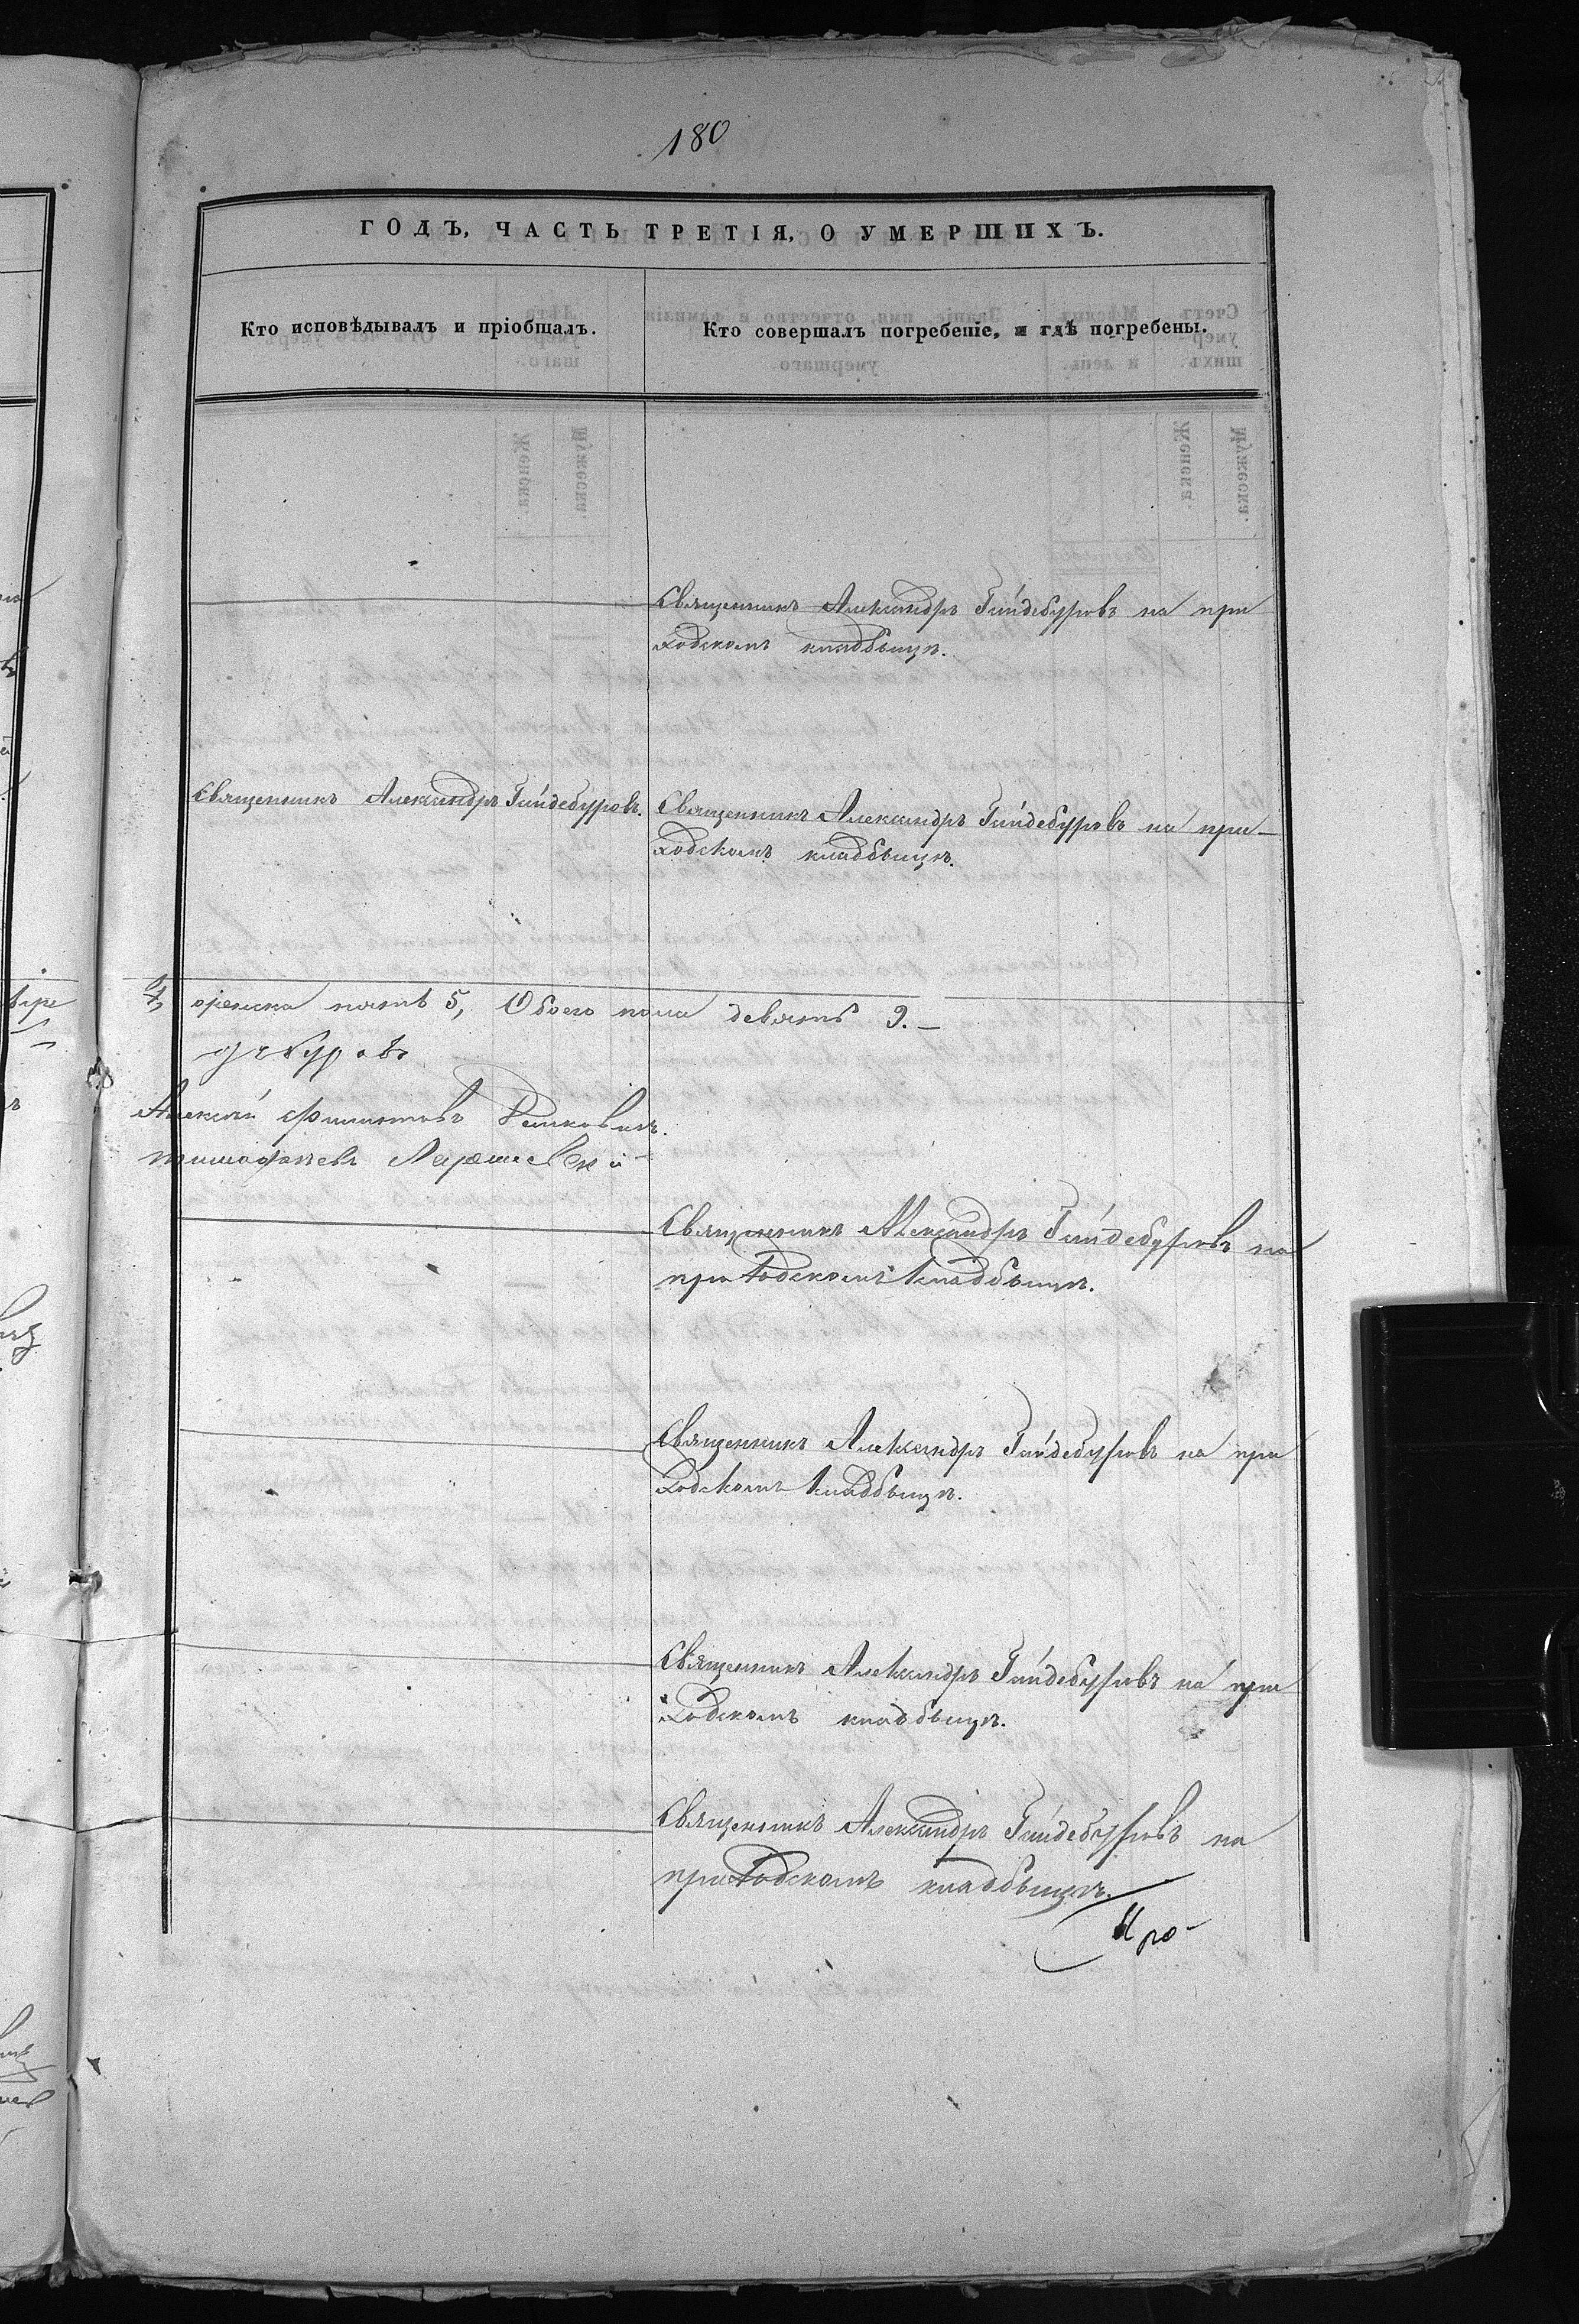 180
ГОДЪ, ЧАСТЬ ТРЕТІЯ, О УМЕРШИХЪ.
Кто исповѣдывалъ и пріобщалъ.
Кто совершалъ погребеніе, и гдѣ погребены.
Священникъ Александръ Гайдебуровъ на при
ходскомъ кладбыщѣ.
Священникъ Александръ Гайдебуровъ.
Священникъ Александръ Гайдебуровъ на при-
ходскомъ кладбыщѣ.
4, женска пять 5, Обоего пола девять 9.–
дебуровъ
Алексѣй Филиповъ
Священникъ Александръ Гайдебуровъ на
приходскомъ кладбыщѣ.
Священникъ Александръ Гайдебуровъ на при
ходскомъ кладбыщѣ.
Священникъ Александръ Гайдебуровъ на при
ходскомъ кладбыщѣ.
Священникъ Александръ Гайдебуровъ на
приходскомъ кладбыщѣ.